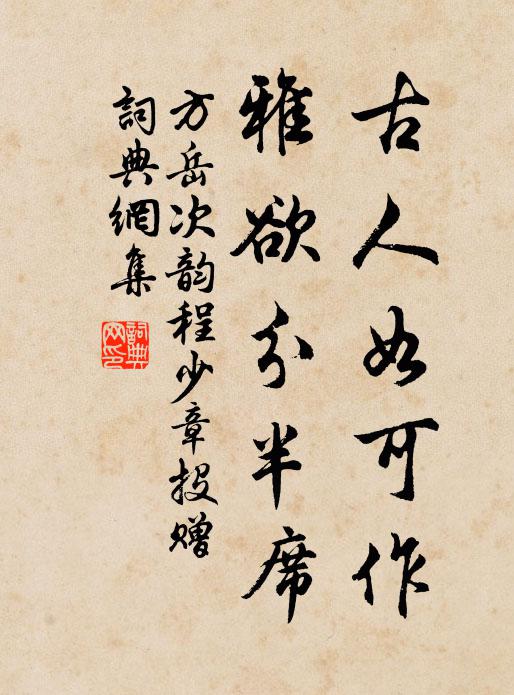 古人如可作
雅欲分半席
方岳次韵程少章投赠
詞典網集
詞典网印